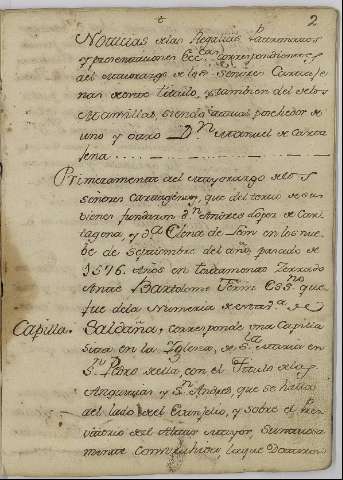 2
Noticias de las Regalias Patronatos
y presentaciones Eccas correspondientes
del Mayorazgo de los Señores Cartaje
nas de este titulo, y tambien del de los
Mansillas, siendo actual poseedor de
uno y otro Dn Manuel de Carta
jena
Primeramente del Mayorazgo de los
señores cartagenas, que del tercio de sus
vienes fundaron dn Andres Lopez de Cart
tagena, y da Elena de Leon en los nue
be de Septiembre del año pasado de
1576 Años en testamento Zerrado
Ante Bartolome Ferrn Essno que
fue de la Numeria de esta
Capilla. Saldaña, corresponde una Capilla
sita en la Yglesia, de Sta Maria en
Sn Pedro de ella, con el Titulo de las
Angustias y Sn Andres, que se halla
del lado del Evanjelio, y sobre el Pres
viterio del Altar mayor, sumtuosa
mente construhida la que Dotaron